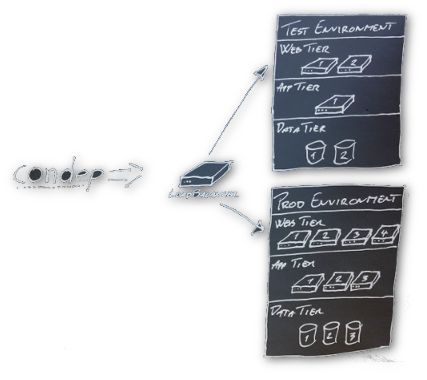 condep
Load Balancer
Test Environment
Web Tier
1 2
App Tier
1
Data Tier
1 2
Prod Environment
Web Tier
1 2 3 4
App Tier
1 2 3
Data Tier
1 2 3